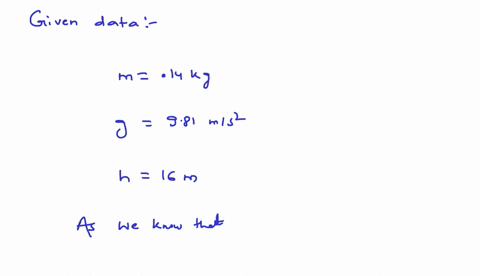 Given data:-
m = .14 kg
g = 9.81 m/s²
h = 16 m
As we know that